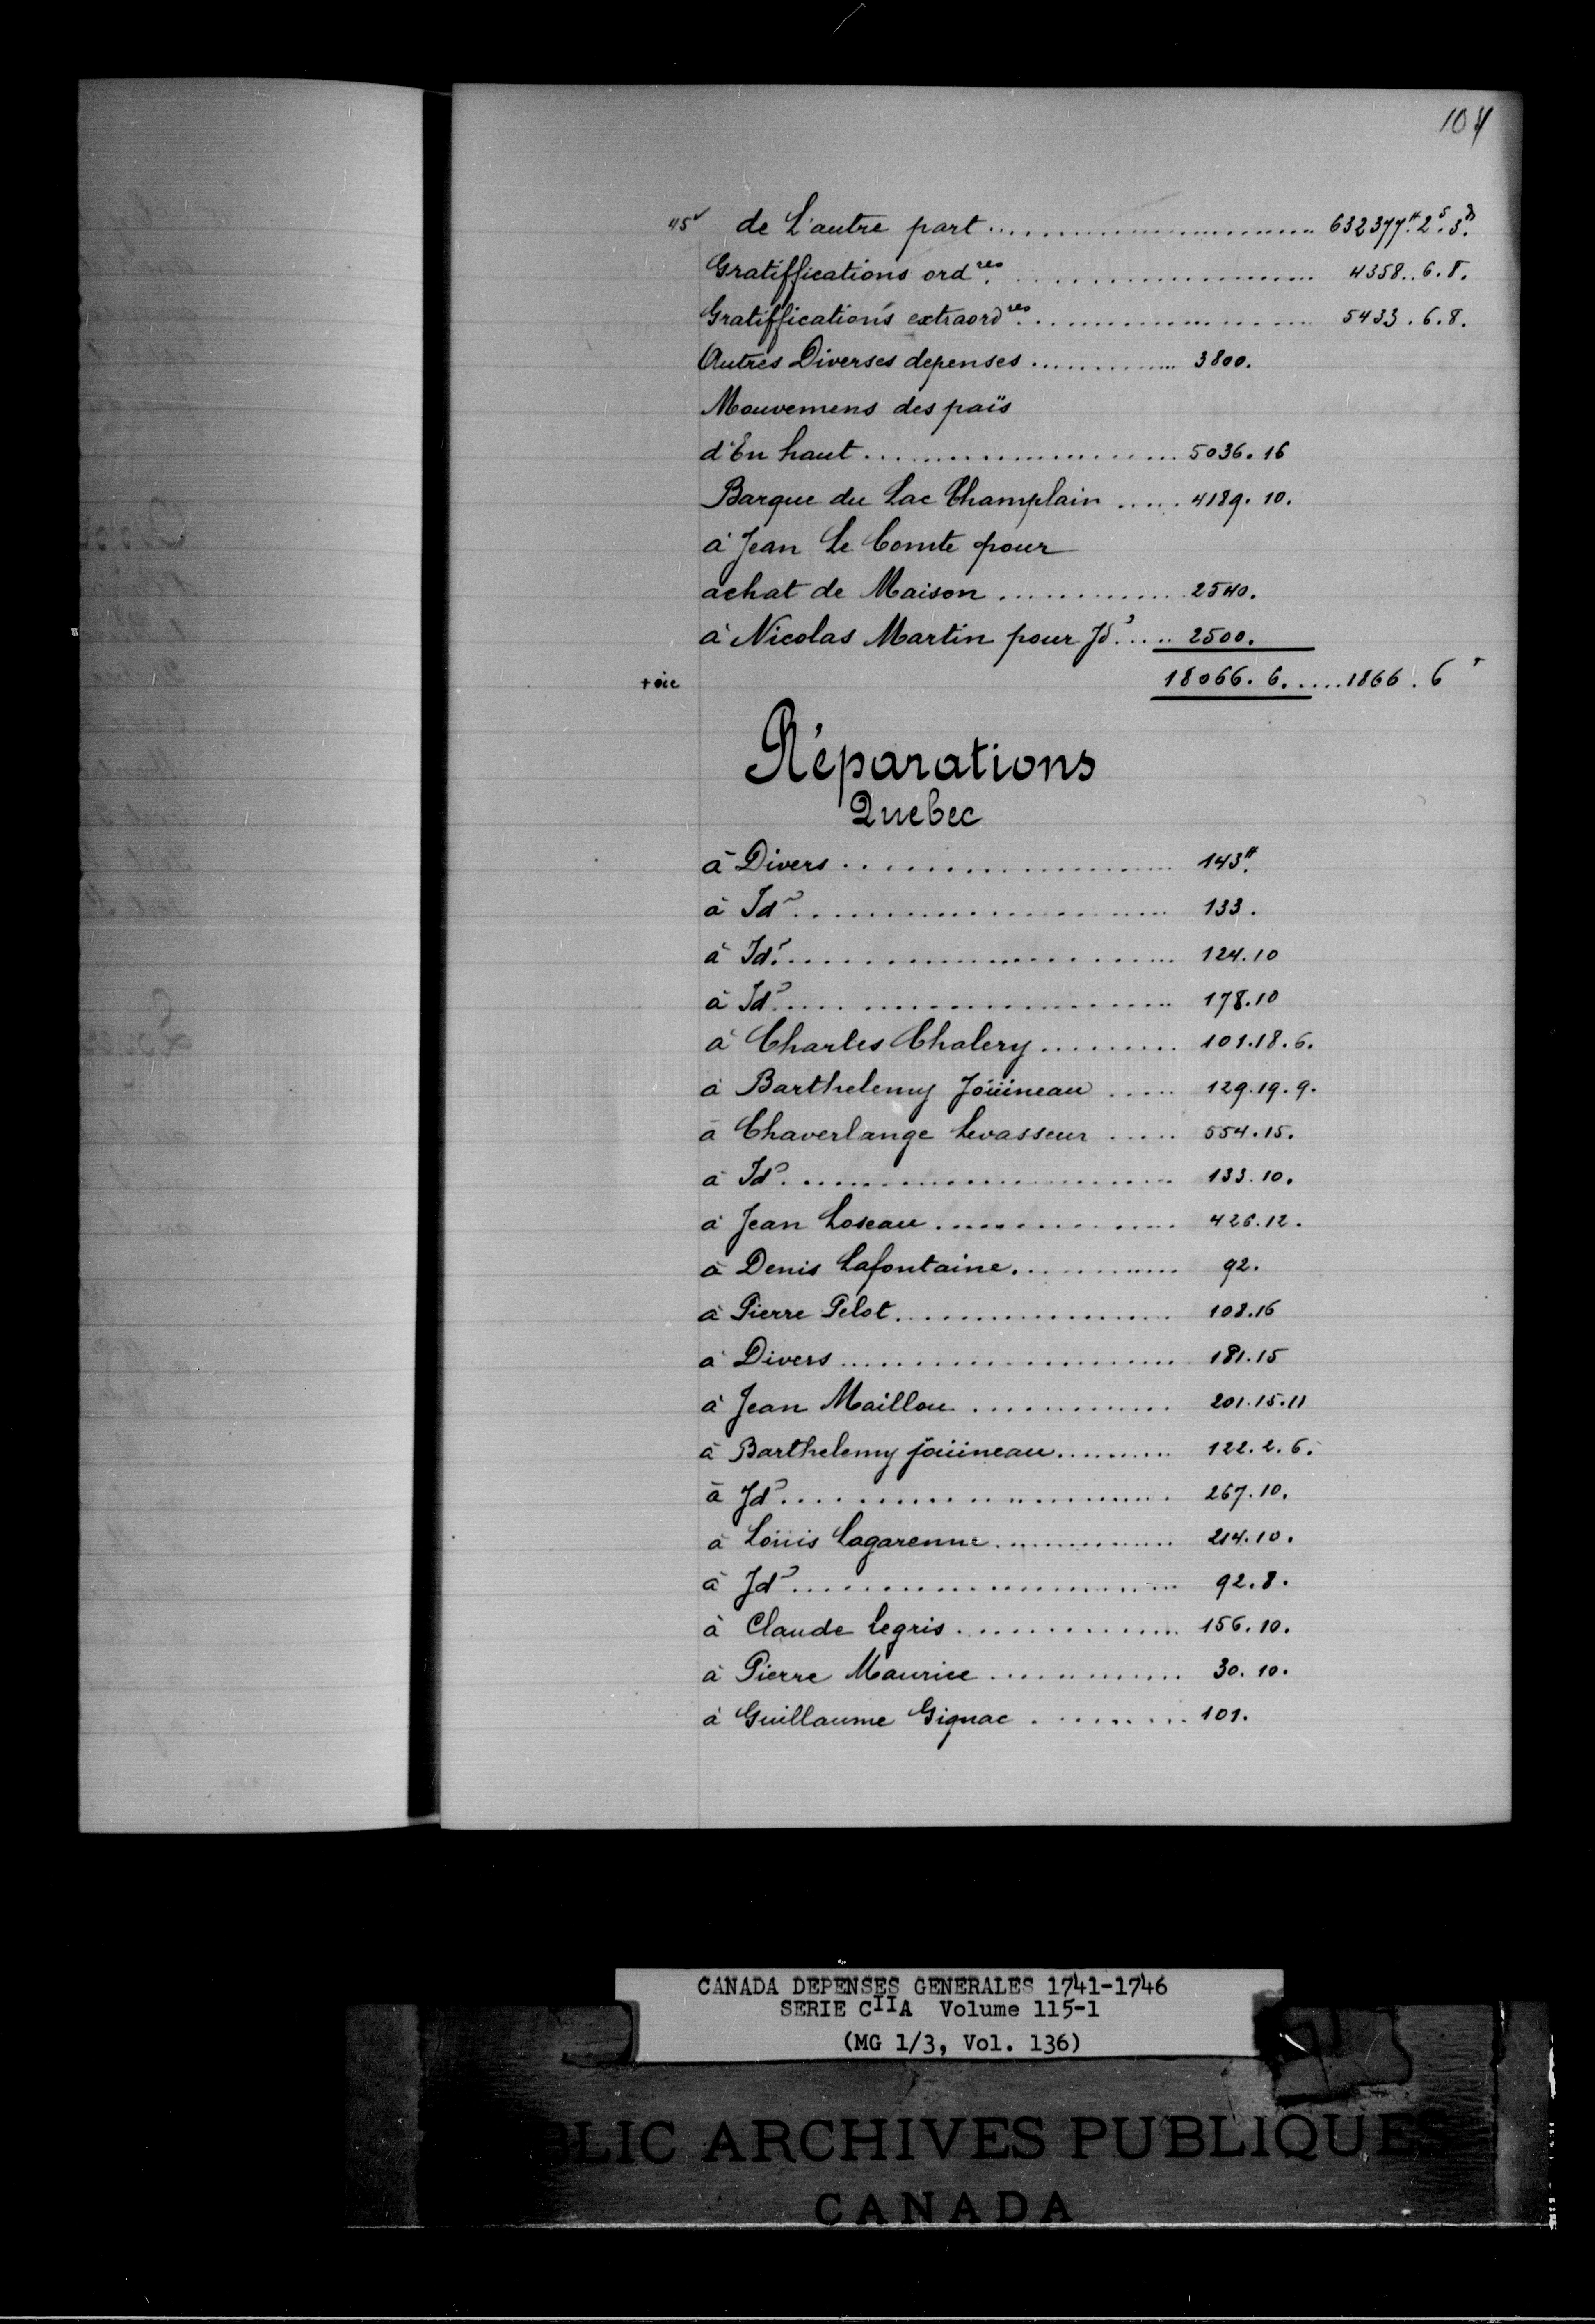 104
45v de L'autre part .......... 632377#. 2s. 3d.
Gratiffications ord.res .......... 4358..6.8.
Gratiffications extraord.res .......... 5433.6.8.
Autres Diverses depenses .......... 3800.
Mouvemens des païs
d'En haut .......... 5036.16
Barque du Lac Champlain ..... 4189.10.
à Jean Le Comte pour
achat de Maison .......... 2540.
à Nicolas Martin pour Jd. .... 2500.
+ sic 18066.6. .... 1866.6
Réparations
Quebec
à Divers .......... 143#.
à Id .......... 133.
à Id. .......... 124.10
à Id .......... 178.10
à Charles Chalery .......... 101.18.6.
à Barthelemy Joüineau ..... 129.19.9.
à Chaverlange Levasseur ..... 554.15.
à Id .......... 133.10.
à Jean Loseau .......... 426.12.
à Denis Lafontaine .......... 92.
à Pierre Pelot .......... 108.16
à Divers .......... 181.15
à Jean Maillou .......... 201.15.11
à Barthelemy joüineau .......... 122.2.6.
à Jd .......... 267.10.
à Loüis Lagarenne .......... 214.10.
à Jd .......... 92.8.
à Claude Legris .......... 156.10.
à Pierre Maurice .......... 30.10.
à Guillaume Gignac .......... 101.
CANADA DEPENSES GENERALES 1741-1746
SERIE CIIA Volume 115-1
(MG 1/3, Vol. 136)
BLIC ARCHIVES PUBLIQUES
CANADA